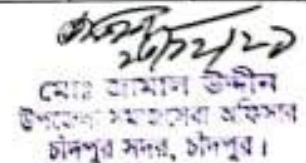 ২৮/১২/২১
মোঃ জামাল উদ্দীন
উপজেলা সমাজসেবা অফিসার
চাঁদপুর সদর, চাঁদপুর।